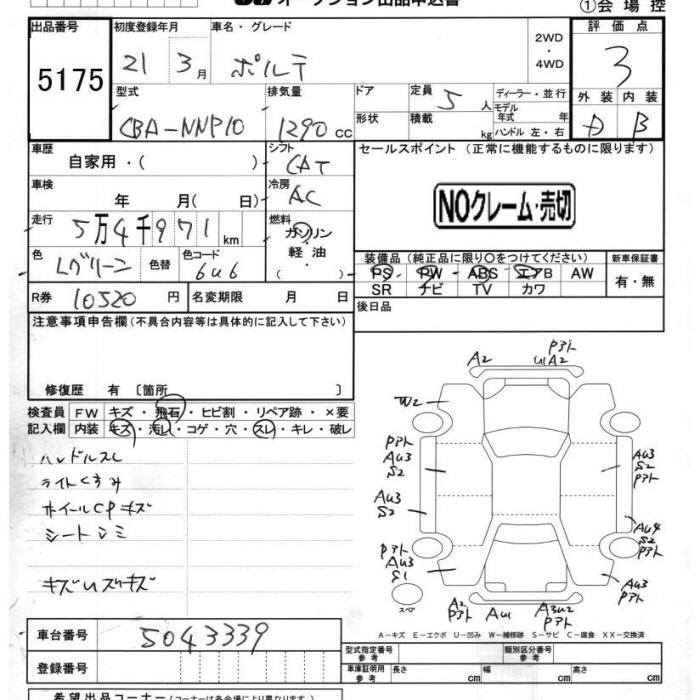 オークション出品申込書 ①会場控
出品番号 初度登録年月 車名・グレード 2WD ・ 4WD 評価点
5175 21 3月 ポルテ 3
型式 排気量 ドア 定員 5人 ディーラー・並行 外装 内装
CBA-NNP10 1290cc 形状 積載 kg モデル年式 年 ハンドル 左・右 D B
車歴 自家用・( ) シフト CAT セールスポイント(正常に機能するものに限ります)
車検 年 月( 日) 冷房 AC NOクレーム・売切
走行 5万4千971km 燃料 ガソリン 軽油・
色 Lグリーン 色替 色コード 6U6 装備品(純正品に限り○をつけてください) 新車保証書
PS PW ABS エアB AW 有・無
R券 10520円 名変期限 月 日 SR ナビ TV カワ
注意事項申告欄(不具合内容等は具体的に記入して下さい) 後日品
修復歴 有 〔箇所 〕
検査員 FW キズ・飛石・ヒビ割・リペア跡・×要
記入欄 内装 キズ・汚レ・コゲ・穴・スレ・キレ・破レ
ハンドルスレ
ライトくすみ
ホイールCPキズ
シートシミ
キズUズキズ
A2 Pアト U1A2
W2
Pアト AU3 S2
AU3 S2 Pアト
AU3 S2
AU4 S2 Pアト
Pアト AU3 S1
AU3 Pアト
スペア
A2 Pアト AU1 A3U2 Pアト
A-キズ E-エクボ U-凹み W-補修跡 S-サビ C-腐食 XX-交換済
車台番号 5043339
型式指定番号 参考 類別区分番号 参考
登録番号 車庫証明用 参考 長さ cm 幅 cm 高さ cm
希望出品コーナー(コーナーは各会場により異なります。)